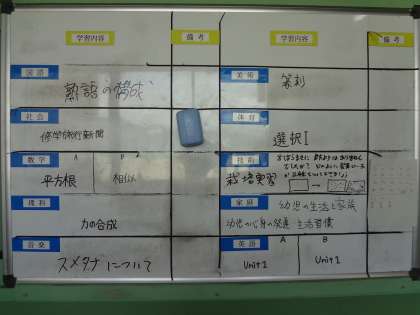 学習内容
備考
学習内容
備考
国語
熟語の構成
社会
修学旅行新聞
数学
A
B
平方根
相似
理科
力の合成
音楽
スメタナについて
美術
篆刻
体育
選択I
技術
栽培実習
家庭
幼児の生活と家族
幼児の心身の発達 生活習慣
英語
A
B
Unit1
Unit1